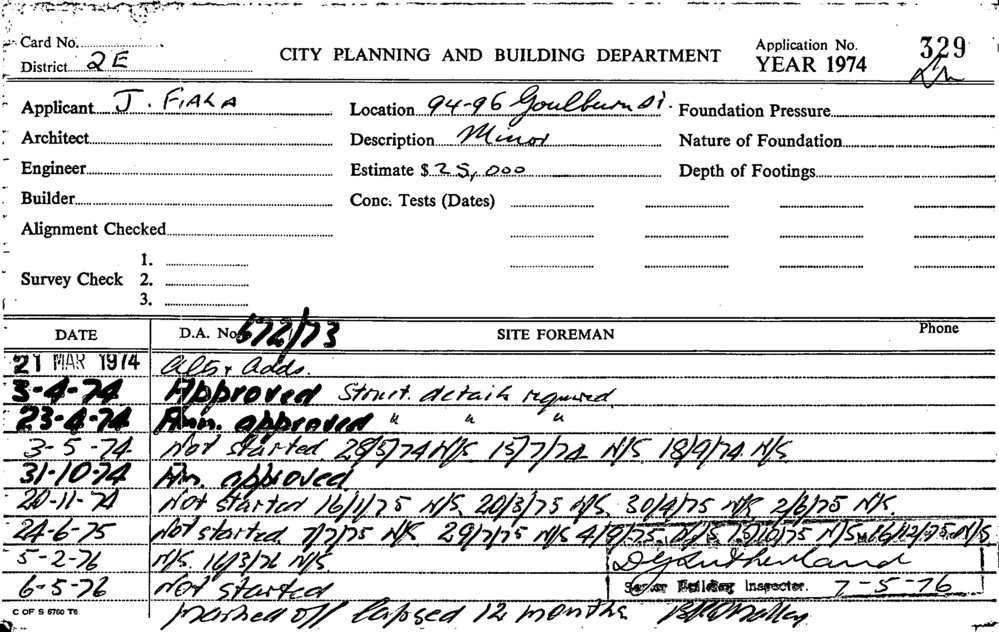 Card No.
District 2E
CITY PLANNING AND BUILDING DEPARTMENT
Application No. 329
YEAR 1974
Applicant J. FIALA
Location 94-96 Goulburn St.
Foundation Pressure
Architect
Description Minor
Nature of Foundation
Engineer
Estimate $ 25,000
Depth of Footings
Builder
Conc. Tests (Dates)
Alignment Checked
Survey Check 1.
2.
3.
DATE D.A. No. 672/73 SITE FOREMAN Phone
21 MAR 1974 Alts + Adds.
3-4-74 Approved Struct. details required
23-4-74 Am. approved " " "
3-5-74 Not started 28/5/74 N/S 15/7/74 N/S 18/9/74 N/S
31-10-74 Am. approved
20-11-74 Not started 16/1/75 N/S. 20/3/75 N/S. 30/4/75 N/S 2/6/75 N/S.
24-6-75 Not started 7/7/75 N/S 29/7/75 N/S 4/9/75 N/S 16/12/75 N/S
5-2-76 N/S. 16/3/76 N/S D Sutherland
6-5-76 Not started Senior Building Inspector. 7-5-76
C OF S 6760 T6 marked off lapsed 12 months B O'Malley